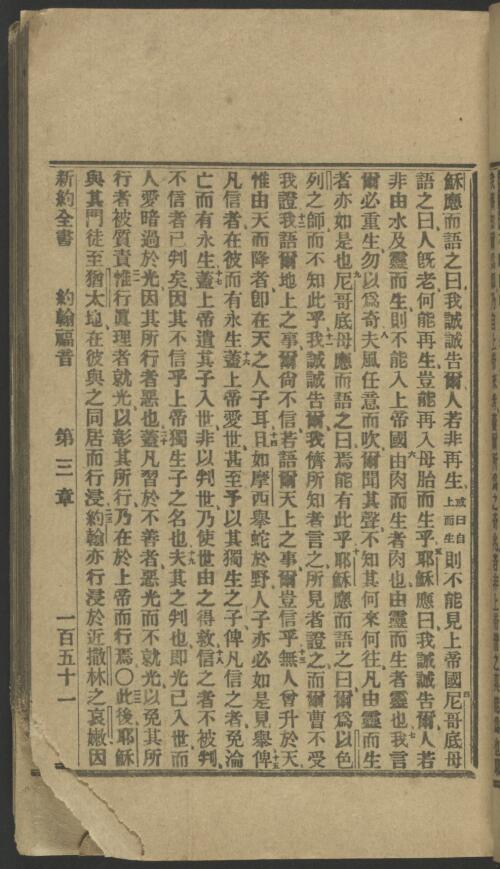 穌應而語之曰我誠誠告爾人若非再生或曰自上而生則不能見上帝國四尼哥底母
語之曰人既老何能再生豈能再入母胎而生乎五耶穌應曰我誠誠告爾人若
非由水及靈而生則不能入上帝國六由肉而生者肉也由靈而生者靈也七我言
爾必重生勿以爲奇八夫風任意而吹爾聞其聲不知其何來何往凡由靈而生
者亦如是也九尼哥底母應而語之曰焉能有此乎十耶穌應而語之曰爾爲以色
列之師而不知此乎十一我誠誠告爾我儕所知者言之所見者證之而爾曹不受
我證十二我語爾地上之事爾尙不信若語爾天上之事爾豈信乎十三無人曾升於天
惟由天而降者卽在天之人子耳十四且如摩西舉蛇於野人子亦必如是見舉十五俾
凡信者在彼而有永生十六蓋上帝愛世甚至予以其獨生之子俾凡信之者免淪
亡而有永生十七蓋上帝遣其子入世非以判世乃使世由之得救十八信之者不被判
不信者已判矣因其不信乎上帝獨生子之名也十九夫其判也卽光已入世而
人愛暗過於光因其所行者惡也二十蓋凡習於不善者惡光而不就光以免其所
行者被質責二一惟行眞理者就光以彰其所行乃在於上帝而行焉〇二二此後耶穌
與其門徒至猶太地在彼與之同居而行浸二三約翰亦行浸於近撒林之哀嫩因
新約全書 約翰福音 第三章 一百五十一